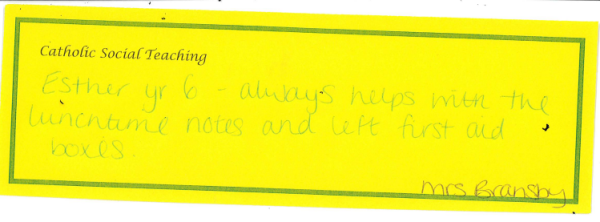 Catholic Social Teaching
Esther yr 6 - always helps with the
lunchtime notes and left first aid
boxes.
Mrs Bransby